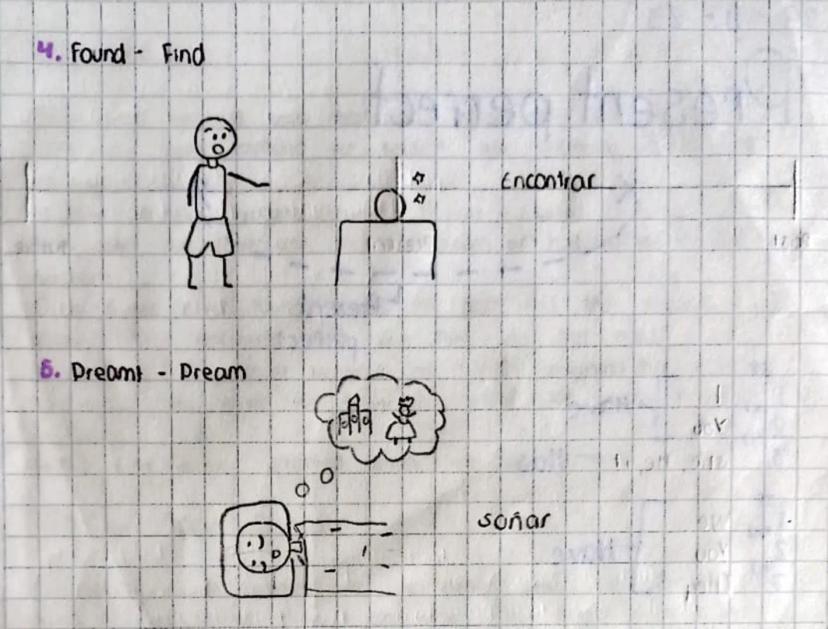 4. Found - Find
Encontrar
5. Dreamt - Dream
soñar